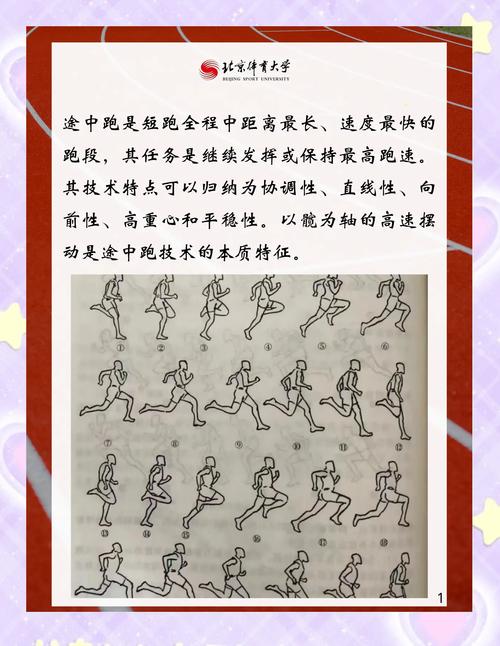 北京体育大学
BEIJING SPORT UNIVERSITY
途中跑是短跑全程中距离最长、速度最快的
跑段，其任务是继续发挥或保持最高跑速。
其技术特点可以归纳为协调性、直线性、向
前性、高重心和平稳性。以髋为轴的高速摆
动是途中跑技术的本质特征。
① ② ③ ④ ⑤ ⑥
⑦ ⑧ ⑨ ⑩ ⑪ ⑫
⑬ ⑭ ⑮ ⑯ ⑰ ⑱
1